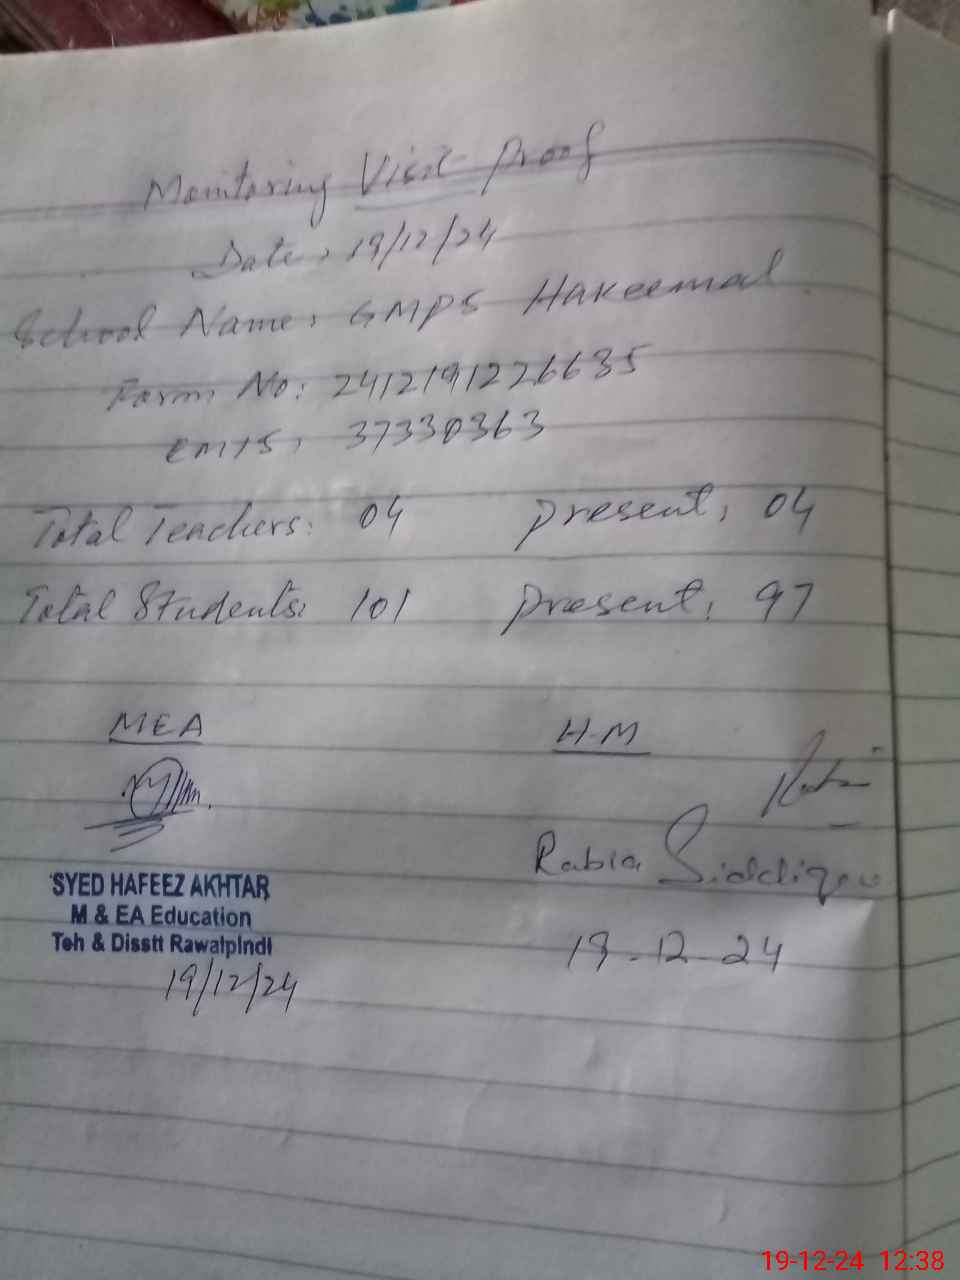 Monitoring Visit Proof
Date: 19/12/24
School Name: GMPS Hakeemal
Form No: 2412191226635
EMIS: 37330363
Total Teachers: 04 present: 04
Total Students: 101 present: 97
MEA H-M
Rabia Siddiqa
SYED HAFEEZ AKHTAR
M & EA Education
Teh & Disstt Rawalpindi
19/12/24
19-12-24
19-12-24 12:38